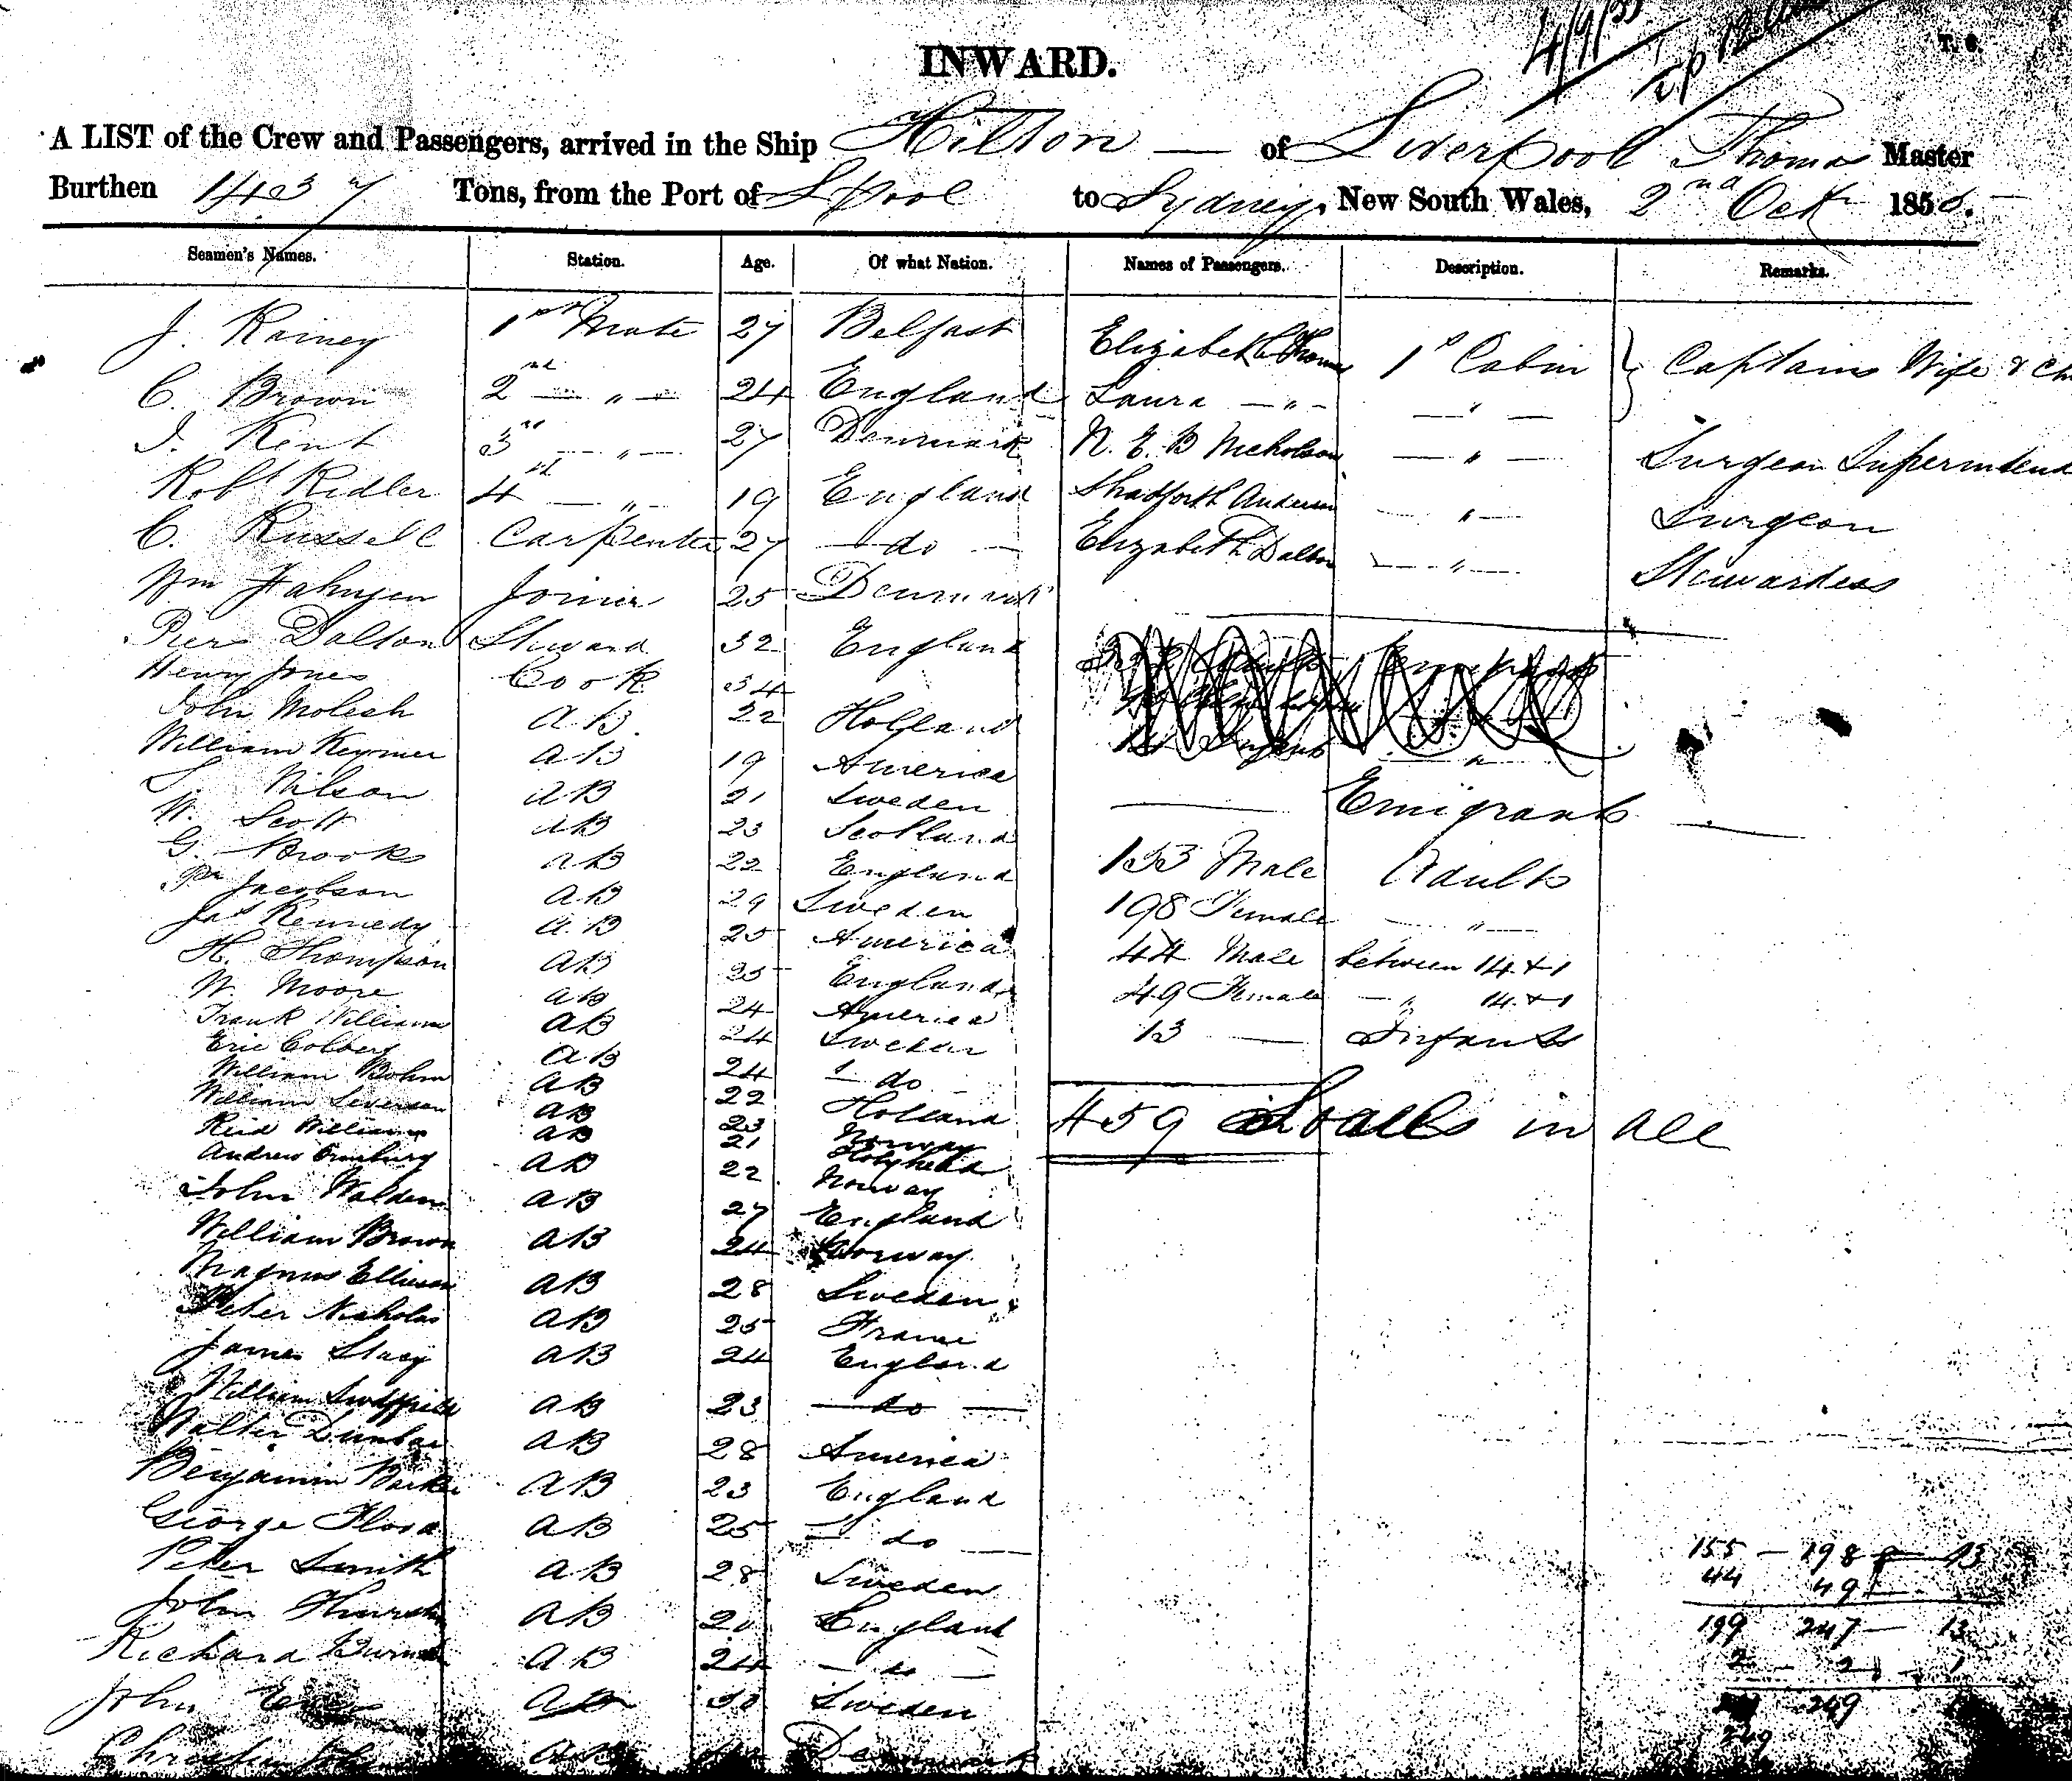 4/9/55
INWARD.
T. 6.
A LIST of the Crew and Passengers, arrived in the Ship Hilton — of Liverpool Thomas Master
Burthen 1437 Tons, from the Port of L'pool to Sydney, New South Wales, 2nd Oct 1855.
Seamen's Names. Station. Age. Of what Nation. Names of Passengers. Description. Remarks.
J. Rainey 1st Mate 27 Belfast Elizabeth Thomas 1st Cabin } Captains Wife &
C. Brown 2nd — " — 24 England Laura — " — — " —
J. Kent 3rd — " — 27 Denmark N. E. B Nicholson — " — Surgeon Superintend
Robt Ridler 4th — " — 19 England Shadforth Anderson — " — Surgeon
C. Russell Carpenter 27 — do — Elizabeth Dalton — " — Stewardess
Wm Joiner 25 Denmark
Dalton Steward 32 England
Henry Jones Cook 34
John AB 22 Holland
William Keymer AB 19 America
Nilson AB 21 Sweden Emigrants
W. Scott AB 23 Scotland
G. Brooks AB 22 England 155 Male Adults
Jacobson AB 29 Sweden 198 Female — " —
Jas Kennedy AB 25 America 44 Male between 14 & 1
H. Thompson AB 25 England 49 Female — " 14 & 1
W. Moore AB 24 America 13 — Infants
Frank William AB 24 Sweden
Eric Colberg AB 24 — do
William Bohm AB 22 Holland 459 Souls in all
William AB 23 Norway
Reid William AB 21 Holyhead
Andrew AB 22 Norway
John Walden AB 27 England
William Brown AB 24 Norway
Magnus Ellison AB 28 Sweden
Peter Nicholas AB 25 France
James Stacy AB 24 England
William AB 23 — do —
Walter Dunbar AB 28 America
Benjamin Barker AB 23 England
George Flood AB 25 — do —
Peter Smith AB 28 Sweden
John AB 20 England
Richard AB 24 — do —
John AB 30 Sweden
AB Denmark
155 — 198 — 13
44 49 —
199 247 — 13
2 — 2 — 1
249
249